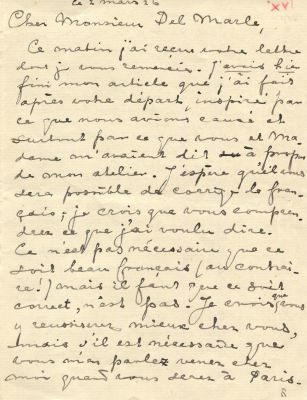 le 2 mars 26
XVI
Cher Monsieur Del Marle,
Ce matin j'ai reçu votre lettre
dont je vous remercie. J'avais hier
fini mon article que j'ai fait
après votre départ, inspiré par
ce que nous avions causé et
surtout par ce que vous et Ma-
dame m'avaient dit à propos
de mon atelier. J'espère qu'il vous
sera possible de corriger le fran-
çais; je crois que vous compren-
drez ce que j'ai voulu dire.
Ce n'est pas nécessaire que ce
soit beau français (au contrai-
re!) mais il faut que ce soit
correct, n'est pas. Je crois que vous
y reussirez mieux chez vous,
mais s'il est nécessaire que
vous m'en parlez venez chez
moi quand vous serez à Paris.